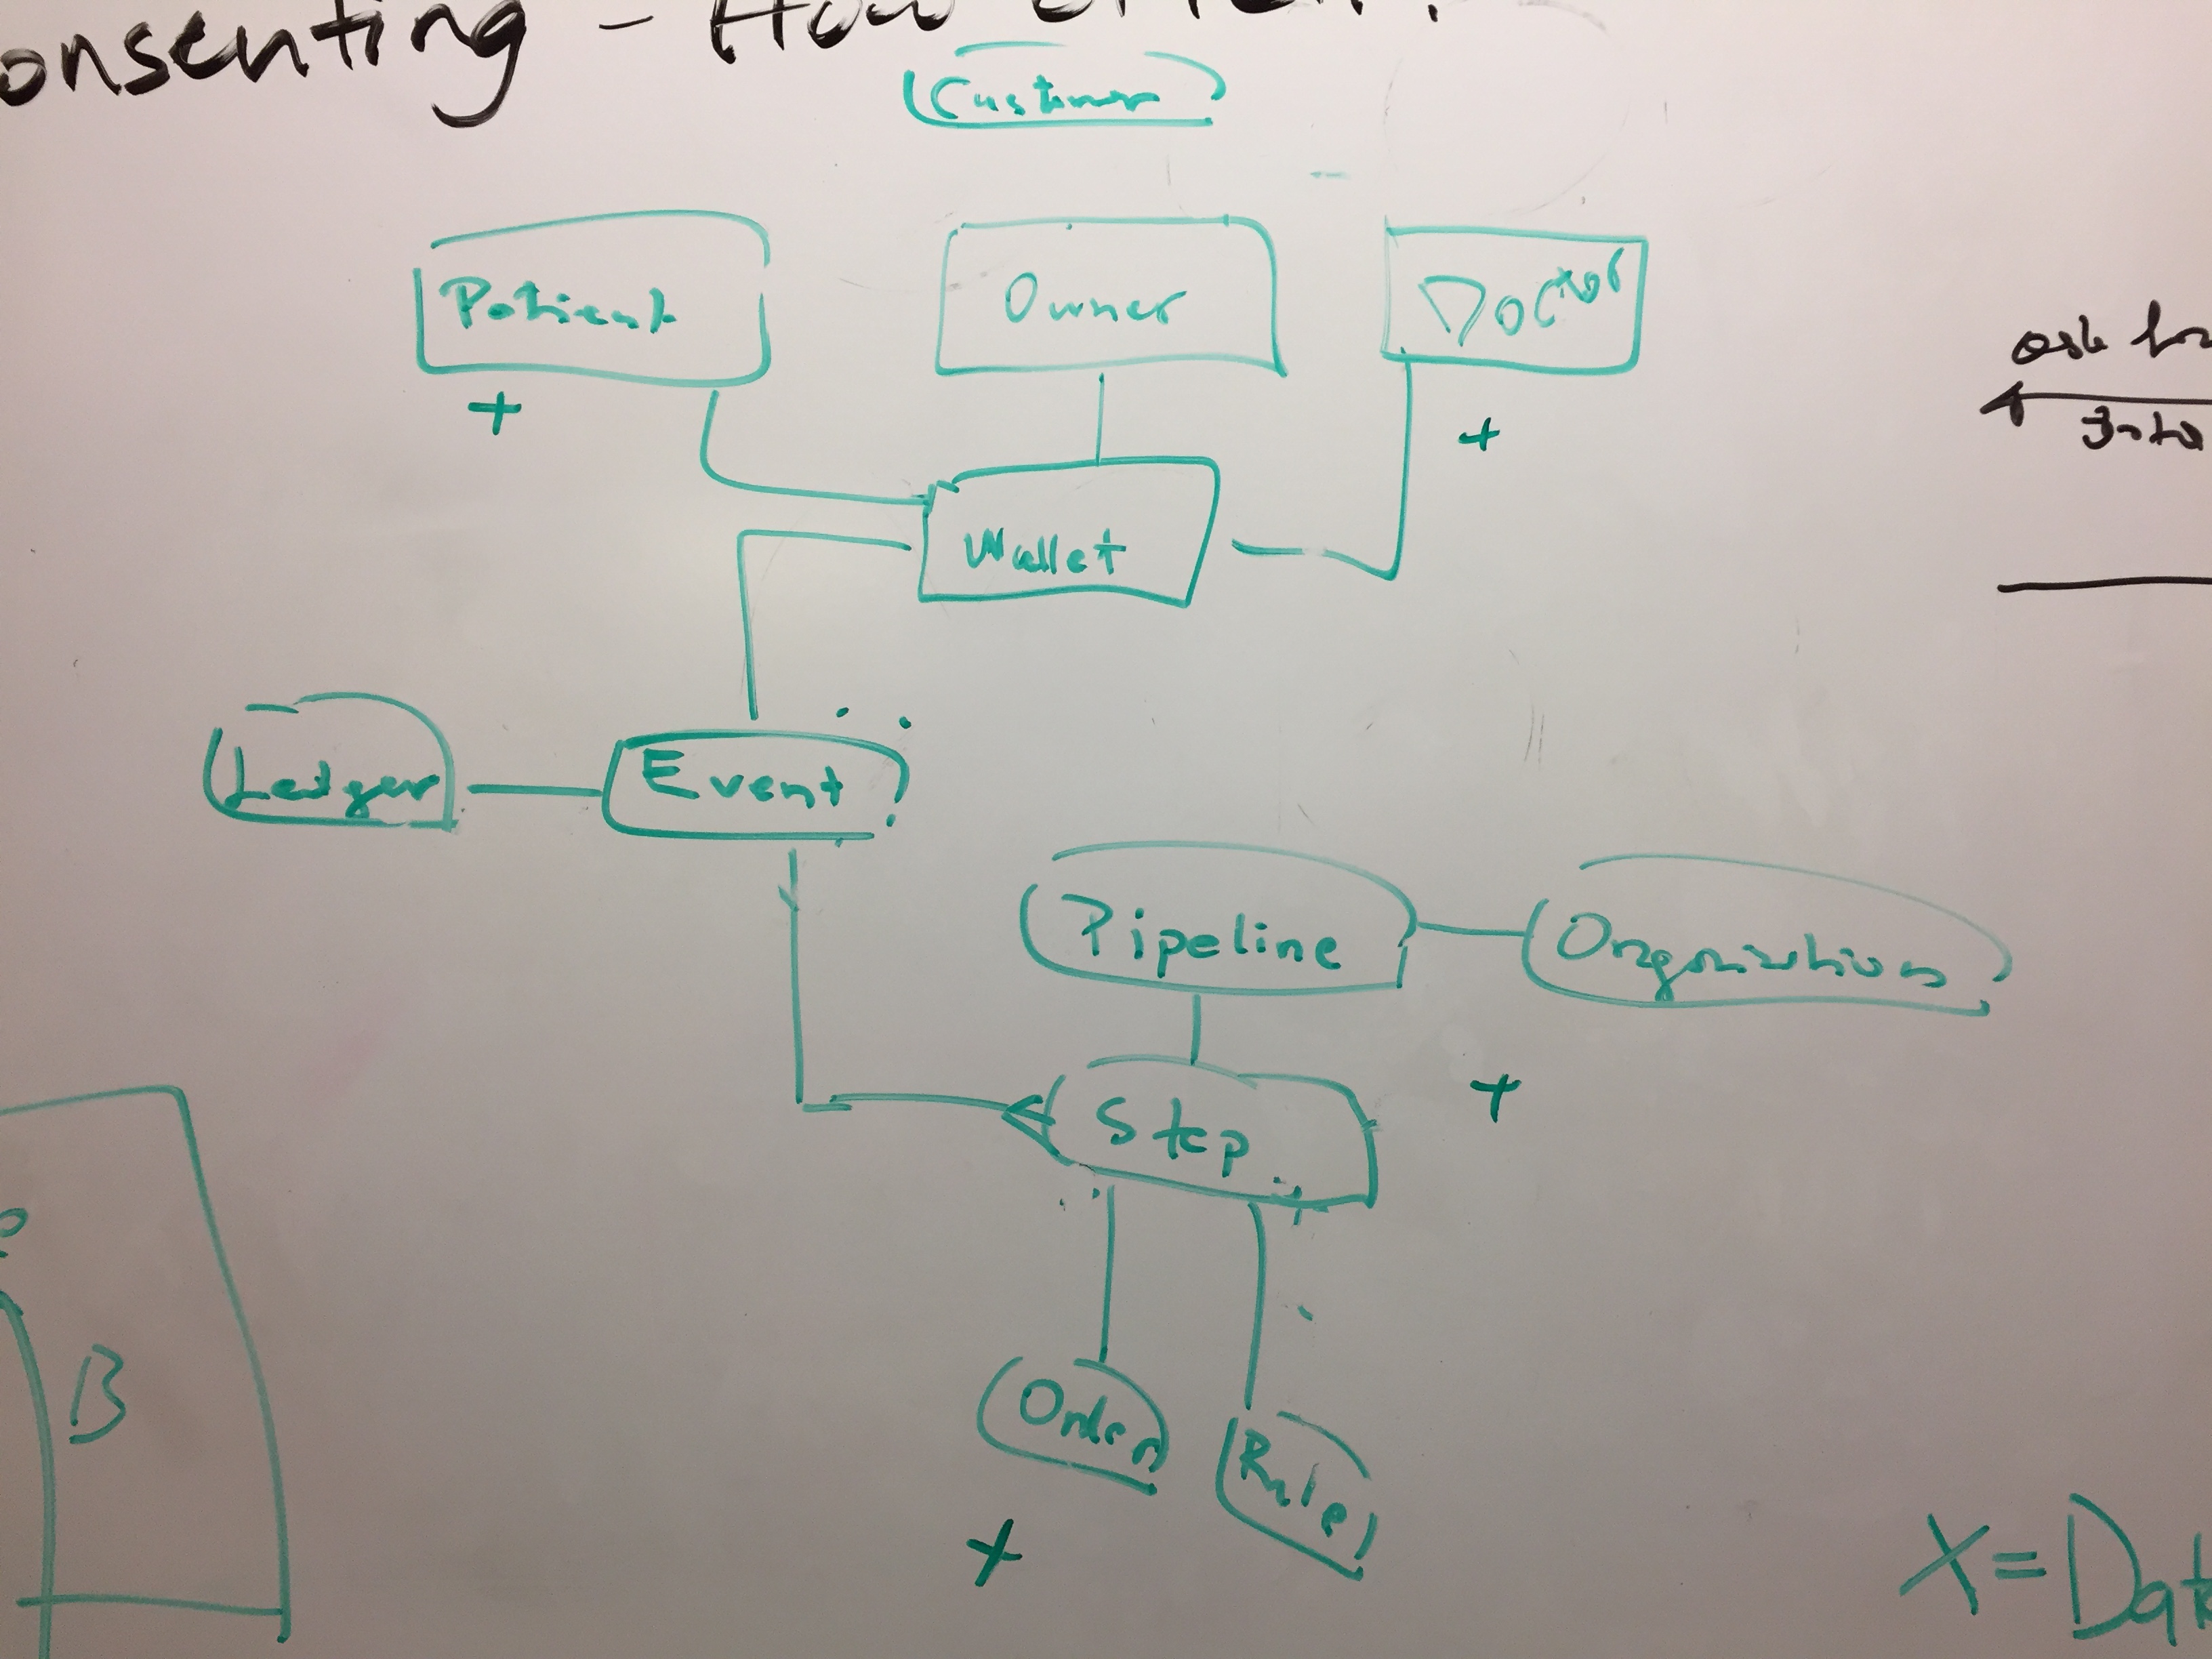 onsenting - How often?
Customer
Patient
Owner
Doctor
+
+
ask for
Wallet
Ledger
Event
Pipeline
Organization
Step
+
B
Order
Rule
+
X = Dat